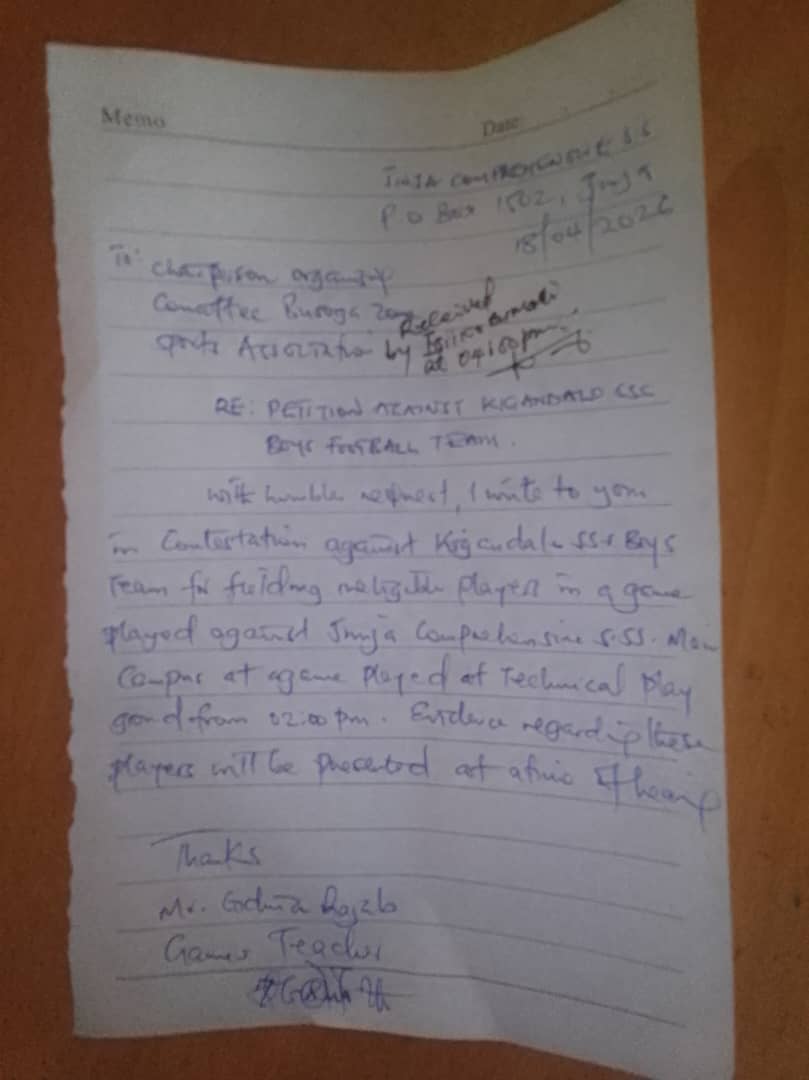 Memo
Date:
JINJA COMPREHENSIVE S.S
P O Box 1502, Jinja
18/04/2026
To:
Chairperson organising
Committee Busoga Zone
sports Association
Received
by
at 04:00pm.
RE: PETITION AGAINST KIGANDALO SSS
BOYS FOOTBALL TEAM.
with humble request, I write to you
in Contestation against Kigandalo SSS Boys
Team for fielding ineligible players in a game
played against Jinja Comprehensive S.SS. Main
Campus at a game played at Technical Play
ground from 02:00 pm. Evidence regarding these
players will be presented at a time of hearing
Thanks
Mr. Rajab
Games Teacher